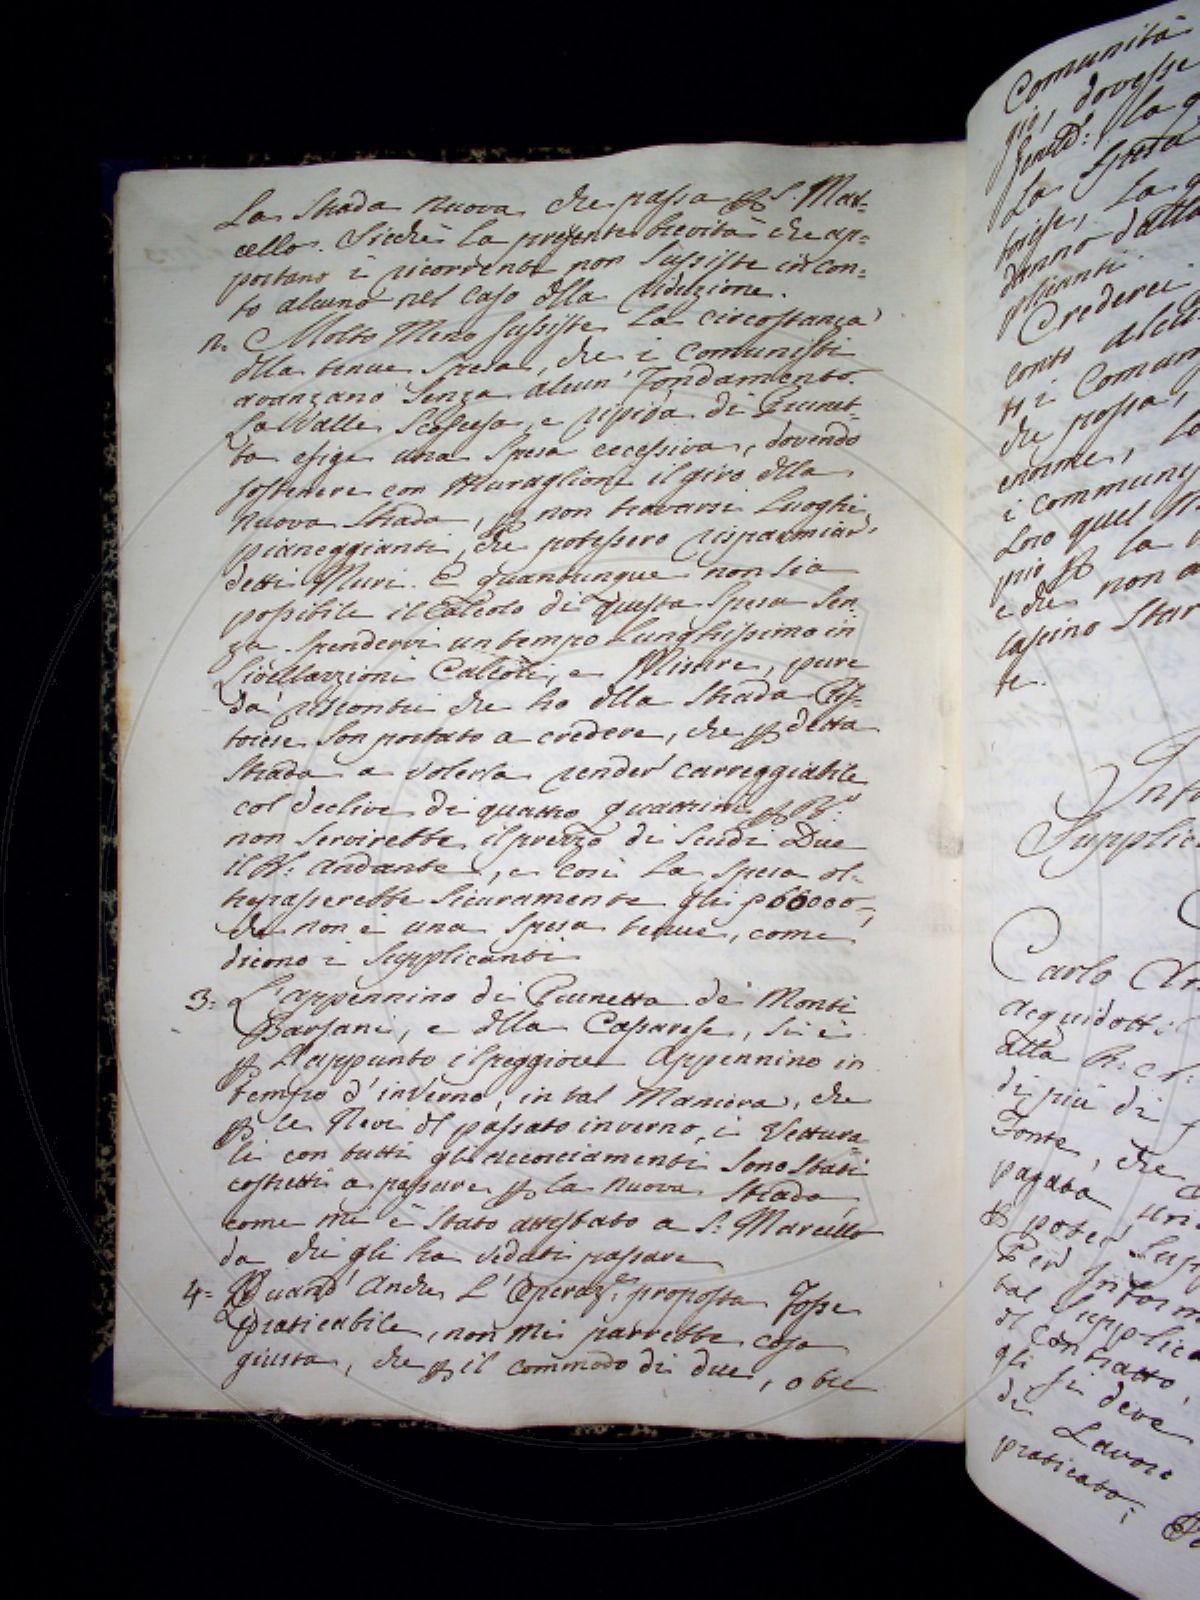 La Strada nuova che passa per S. Mar=
cello. Sicchè la presente brevità che ap=
portano i ricorrenti non sussiste in con=
to alcuno nel caso dlla riduzione.
2. Molto Meno sussiste la circostanza
dlla tenue spesa, che i Comunisti
avanzano senza alcun' Fondamento.
La Valle scoscesa, e ripida di Prunet=
ta esige una spesa eccessiva, dovendo
sostenere con Muraglioni il giro dlla
nuova Strada, per non trovarsi Luoghi
pianeggianti, che potessero risparmiar'
detti Muri. E quantunque non sia
possibile il Calcolo di questa spesa sen=
za spendervi un tempo Lunghissimo in
Livellazioni Calcoli, e Misure, pure
da' riscontri che ho dlla Strada Pis=
toiese son portato a credere, che per detta
Strada a volerla render' carreggiabile
col declive di quattro quattrini per
non servirebbe il prezzo di Scudi Due
il Br: andante, e così La spesa ol=
trepasserebbe sicuramente gli 66000=,
che non è una spesa tenue, come
dicono i supplicanti
3= L'appennino di Prunetta de Monti
e dlla Casparese, si è
per L'appunto il peggiore Appennino in
tempo d'inverno, in tal Maniera, che
per le Nevi dl passato inverno, i Vettura=
li con tutti gli accorciamenti sono stati
costretti a passare per la nuova Strada,
come mi è stato attestato a S: Marcello
da chi gli ha veduti passare
4= Quand' Anche L'Operaz.e proposta Fosse
praticabile, non mi parrebbe cosa
giusta, che per il commodo di due, o tre
Comunità
dovesse
la
La
danno
plicanti.
Crederei
conto alcu
i Comun
che possa,
enorme,
i communi
Loro quel
più per la
e che non
lascino star
te.
Inf
Supplic
Carlo
acquidotti
alla
di più di
Fonte, che
pagata un
per poter Supp
Per inform
tal supplica
dl Contratto,
gli si deve
de Lavori
praticato;